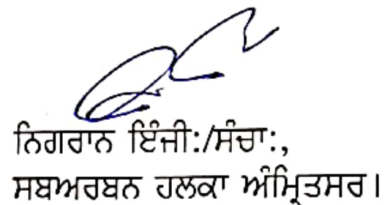 ਨਿਗਰਾਨ ਇੰਜੀ:/ਸੰਚਾ:,
ਸਬਅਰਬਨ ਹਲਕਾ ਅੰਮ੍ਰਿਤਸਰ।